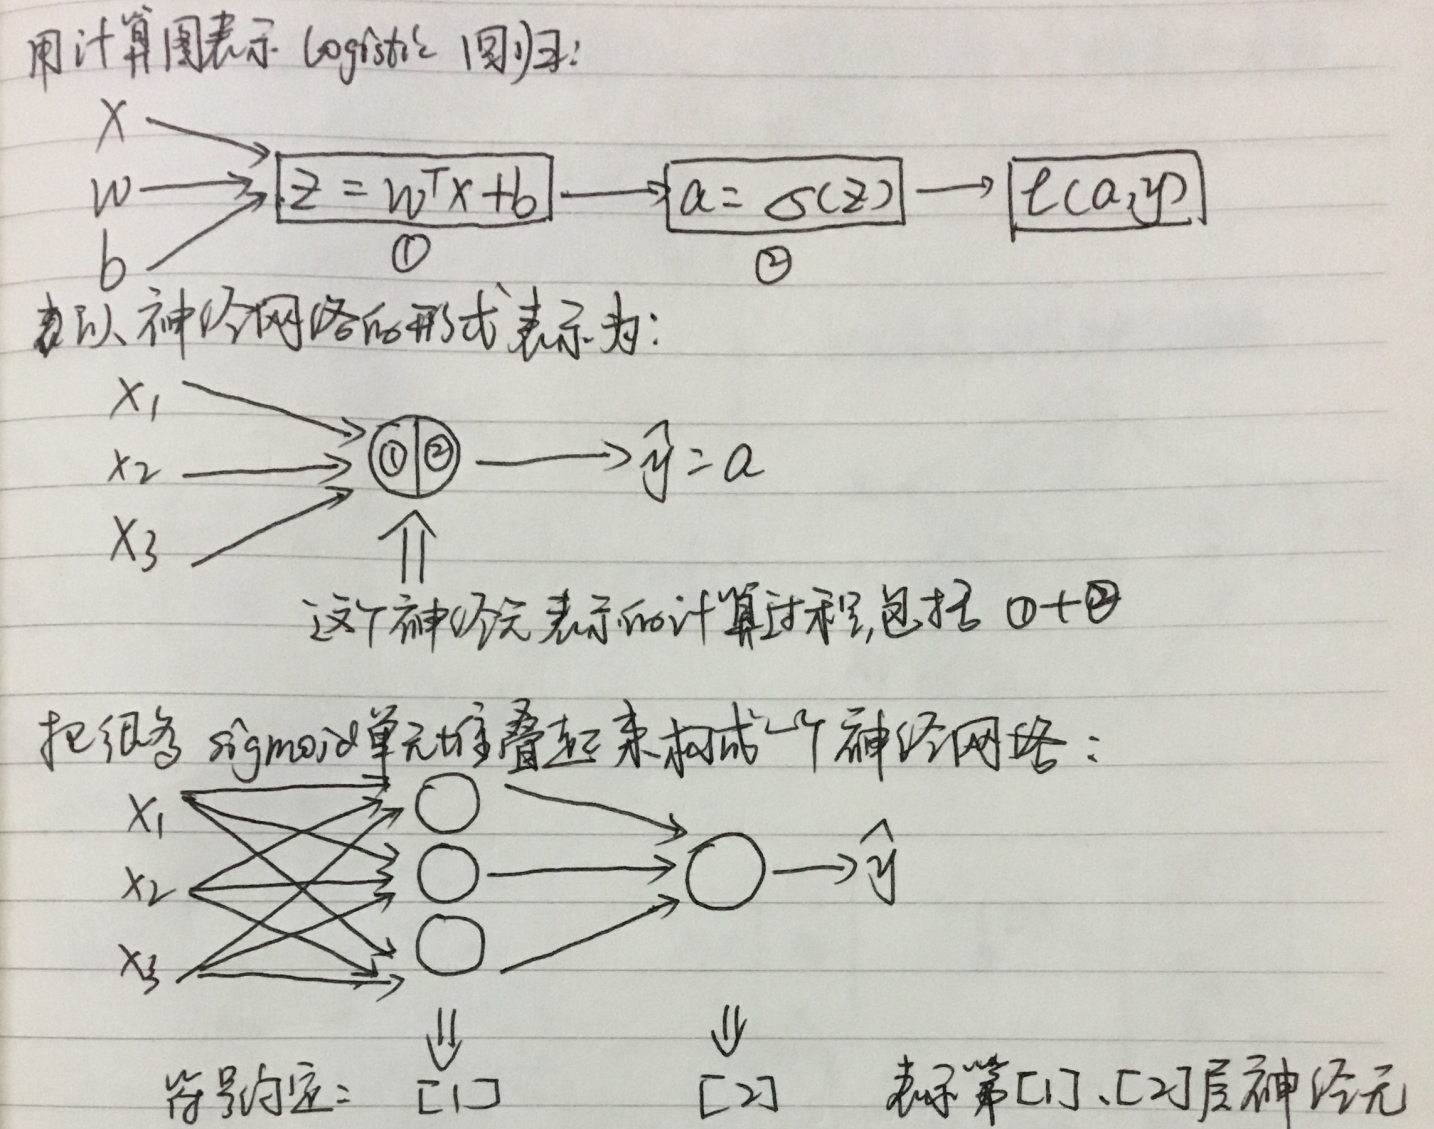 用计算图表示 Logistic 回归:
x
w
b
z = wᵀx+b
①
a = σ(z)
②
ℓ(a,y)
以神经网络的形式表示为:
x₁
x₂
x₃
① ②
ŷ = a
这个神经元表示的计算过程,包括 ①+②
把很多 sigmoid单元堆叠起来构成一个神经网络:
x₁
x₂
x₃
ŷ
符号约定: [1] [2] 表示第[1]、[2]层神经元